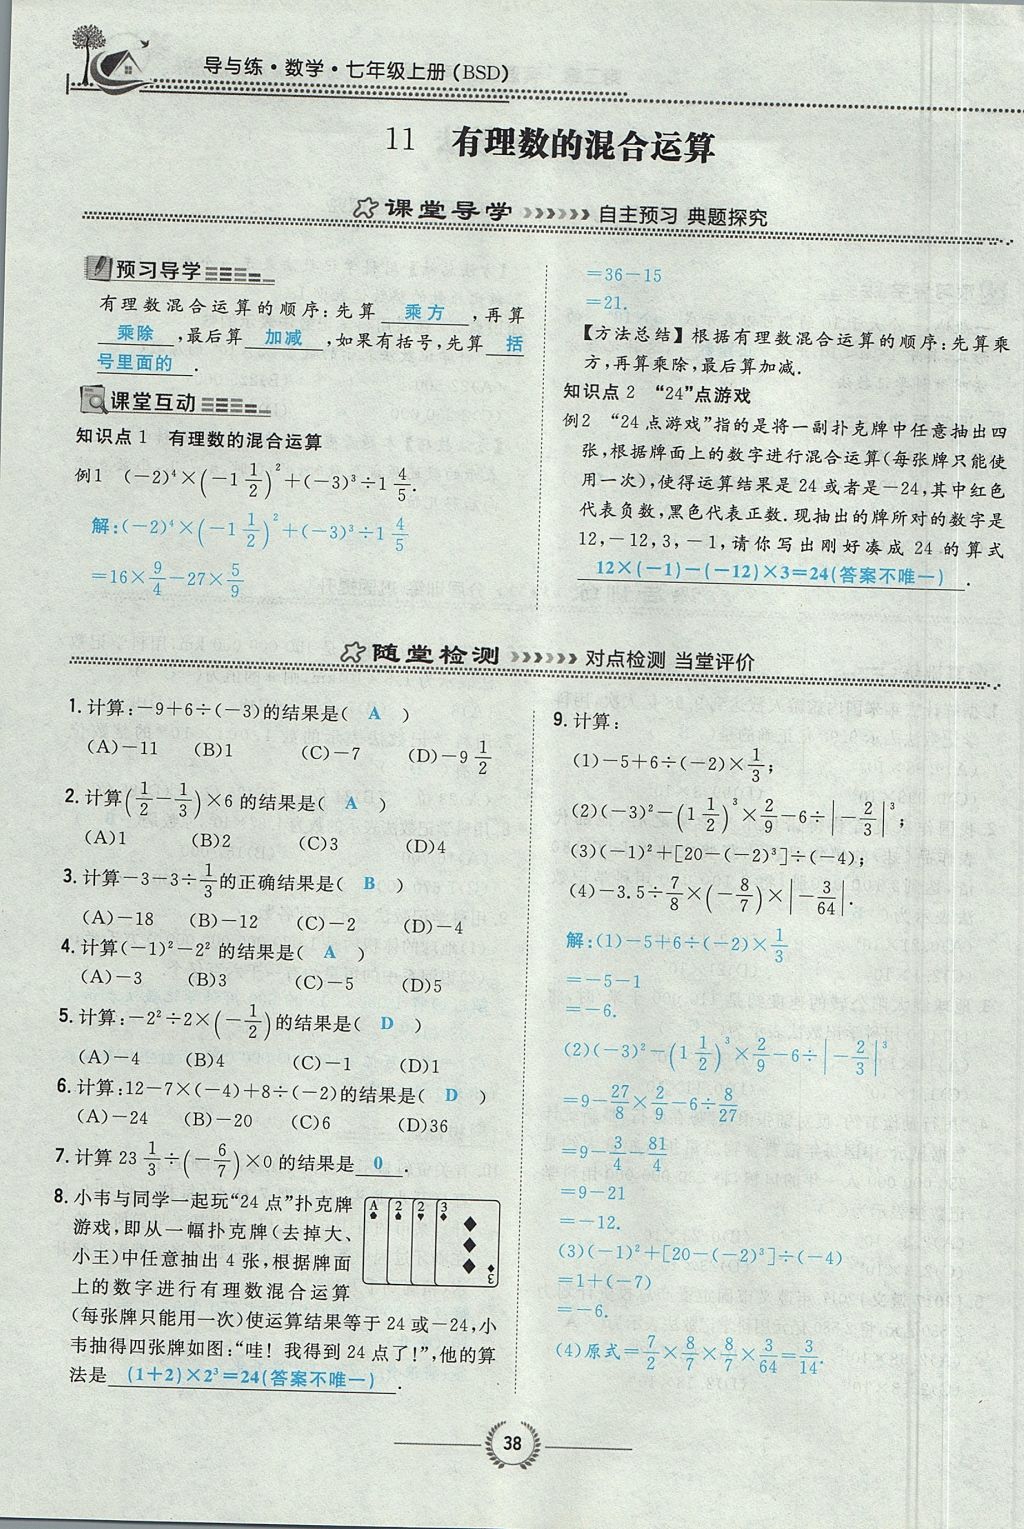 导与练·数学·七年级上册(BSD)
11 有理数的混合运算
课堂导学 自主预习 典题探究
预习导学
有理数混合运算的顺序:先算 乘方 ,再算
乘除 ,最后算 加减 ,如果有括号,先算 括
号里面的 .
课堂互动
知识点1 有理数的混合运算
例1 (-2)⁴×(-1 1/2)²+(-3)³÷1 4/5.
解:(-2)⁴×(-1 1/2)²+(-3)³÷1 4/5
=16×9/4-27×5/9
=36-15
=21.
【方法总结】根据有理数混合运算的顺序:先算乘
方,再算乘除,最后算加减.
知识点2 “24”点游戏
例2 “24点游戏”指的是将一副扑克牌中任意抽出四
张,根据牌面上的数字进行混合运算(每张牌只能使
用一次),使得运算结果是24或者是-24,其中红色
代表负数,黑色代表正数.现抽出的牌所对的数字是
12,-12,3,-1,请你写出刚好凑成24的算式
12×(-1)-(-12)×3=24(答案不唯一) .
随堂检测 对点检测 当堂评价
1.计算:-9+6÷(-3)的结果是( A )
(A)-11 (B)1 (C)-7 (D)-9 1/2
2.计算(1/2-1/3)×6的结果是( A )
(A)1 (B)2 (C)3 (D)4
3.计算-3-3÷1/3的正确结果是( B )
(A)-18 (B)-12 (C)-2 (D)-4
4.计算(-1)²-2²的结果是( A )
(A)-3 (B)3 (C)-5 (D)5
5.计算:-2²÷2×(-1/2)的结果是( D )
(A)-4 (B)4 (C)-1 (D)1
6.计算:12-7×(-4)+8÷(-2)的结果是( D )
(A)-24 (B)-20 (C)6 (D)36
7.计算23 1/3÷(-6/7)×0的结果是 0 .
8.小韦与同学一起玩“24点”扑克牌
游戏,即从一幅扑克牌(去掉大、
小王)中任意抽出4张,根据牌面
上的数字进行有理数混合运算
(每张牌只能用一次)使运算结果等于24或-24,小
韦抽得四张牌如图:“哇!我得到24点了!”,他的算
法是 (1+2)×2³=24(答案不唯一) .
A 2 2 3
3
9.计算:
(1)-5+6÷(-2)×1/3;
(2)(-3)²-(1 1/2)³×2/9-6÷|-2/3|³;
(3)(-1)²+[20-(-2)³]÷(-4);
(4)-3.5÷7/8×(-8/7)×|-3/64|.
解:(1)-5+6÷(-2)×1/3
=-5-1
=-6.
(2)(-3)²-(1 1/2)³×2/9-6÷|-2/3|³
=9-27/8×2/9-6÷8/27
=9-3/4-81/4
=9-21
=-12.
(3)(-1)²+[20-(-2)³]÷(-4)
=1+(-7)
=-6.
(4)原式=7/2×8/7×8/7×3/64=3/14.
38